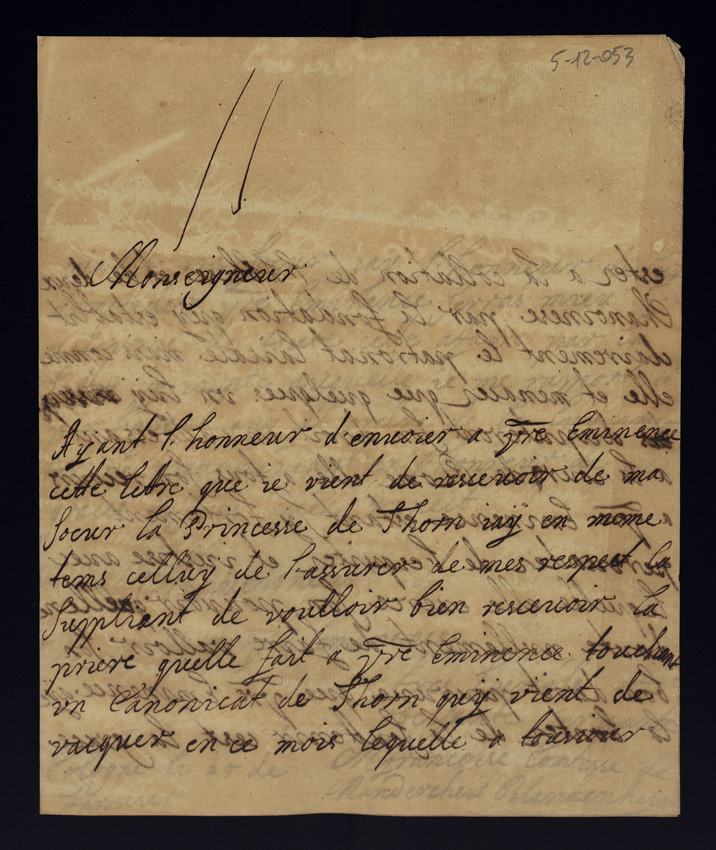 5-12-053
Monseigneur
Ayant l honneur d envoier a vre Eminence
cette lettre que ie vient de rescevoir de ma
Soeur la Princesse de Thorn iaÿ en meme
tems celluy de l assurer de mes respect la
Suppliant de voulloir bien rescevoir la
priere quelle fait a vre Eminence touchant
vn Canonicat de Thorn quÿ vient de
vacquer en ce mois lequelle a tousiour